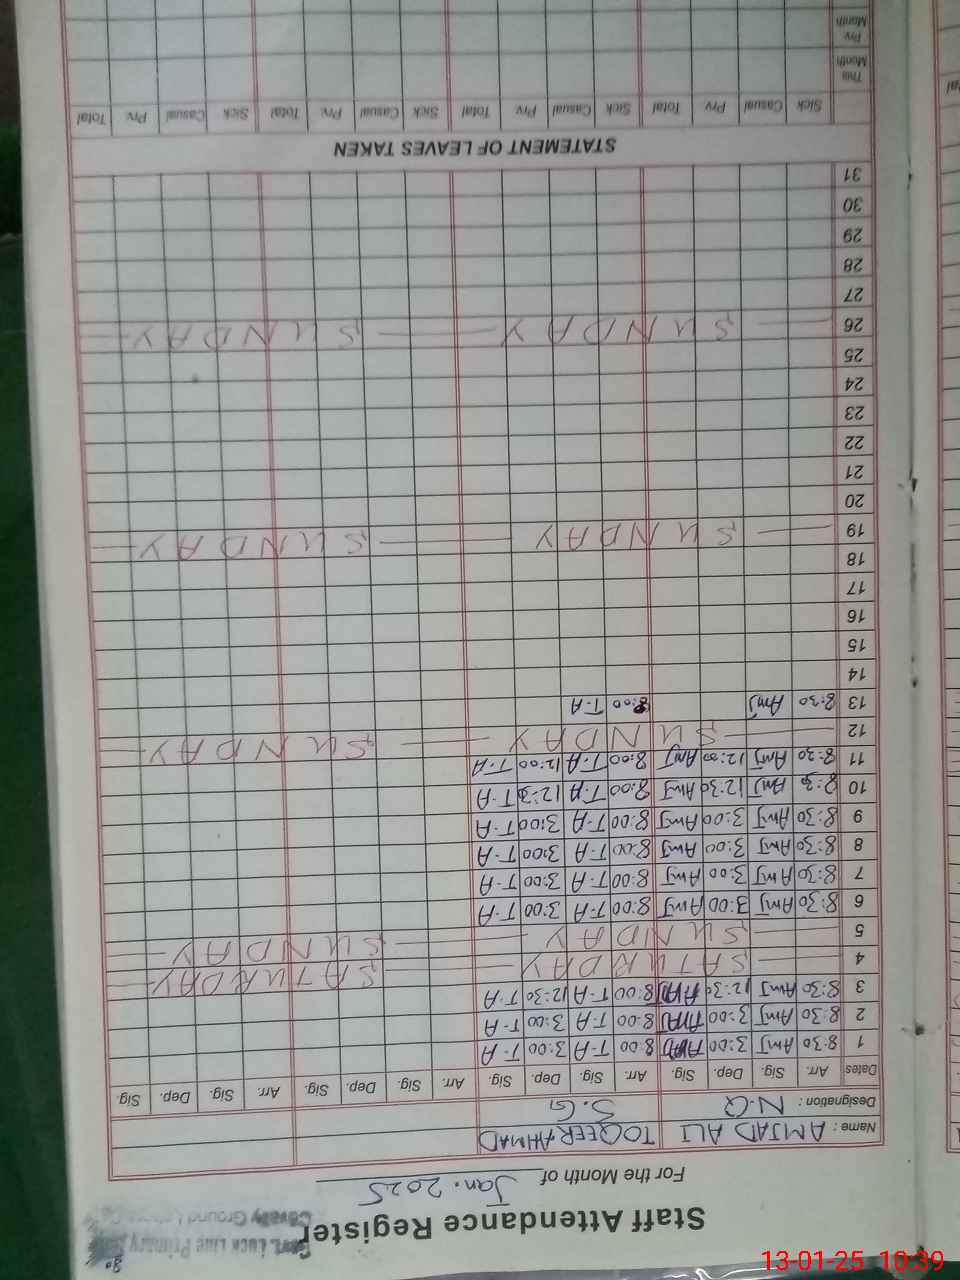 Staff Attendance Register
For the Month of Jan. 2025
Name : AMJAD ALI TOQEER AHMAD
Designation : N.Q S.G
Dates Arr. Sig. Dep. Sig. Arr. Sig. Dep. Sig. Arr. Sig. Dep. Sig. Arr. Sig. Dep. Sig.
1 8:30 AmJ 3:00 8:00 T-A 3:00 T-A
2 8:30 AmJ 3:00 8:00 T-A 3:00 T-A
3 8:30 AmJ 12:30 8:00 T-A 12:30 T-A
4 SATURDAY SATURDAY
5 SUNDAY SUNDAY
6 8:30 AmJ 3:00 AmJ 8:00 T-A 3:00 T-A
7 8:30 AmJ 3:00 AmJ 8:00 T-A 3:00 T-A
8 8:30 AmJ 3:00 AmJ 8:00 T-A 3:00 T-A
9 8:30 AmJ 3:00 AmJ 8:00 T-A 3:00 T-A
10 8:30 AmJ 12:30 AmJ 8:00 T-A T-A
11 8:30 AmJ 12:00 AmJ 8:00 T-A 12:00 T-A
12 SUNDAY SUNDAY
13 8:30 AmJ 8:00 T-A
14
15
16
17
18
19 SUNDAY SUNDAY
20
21
22
23
24
25
26 SUNDAY SUNDAY
27
28
29
30
31
STATEMENT OF LEAVES TAKEN
Sick Casual Prv. Total Sick Casual Prv. Total Sick Casual Prv. Total Sick Casual Prv. Total
This Month
Prv. Month
13-01-25 10:39